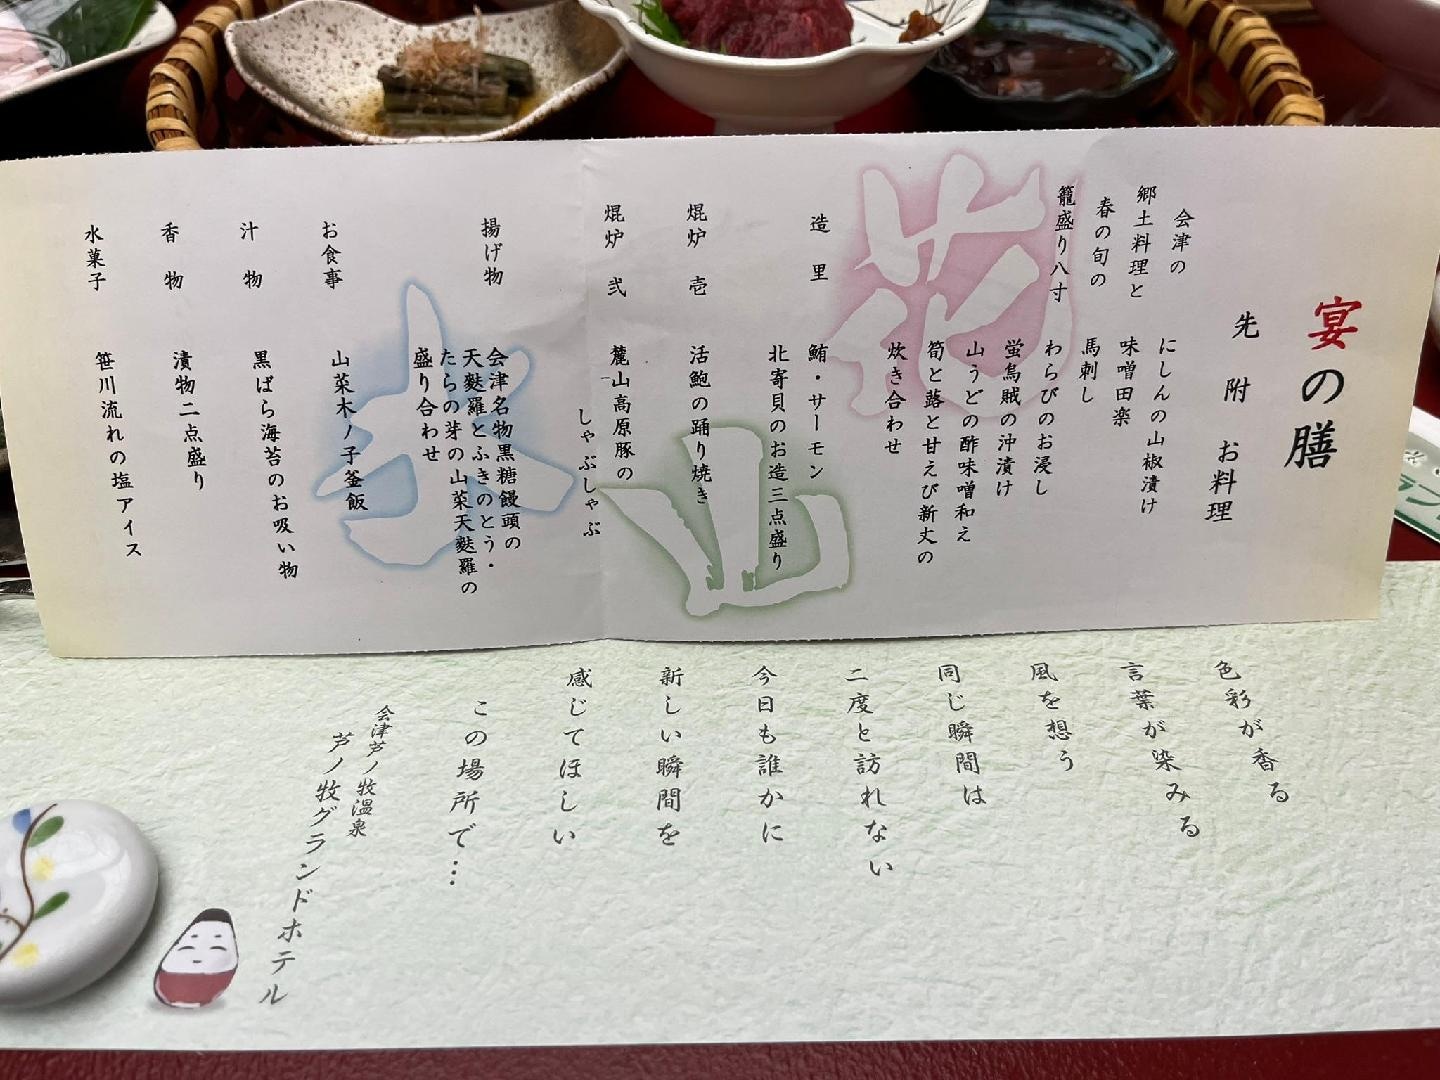 宴の膳
先附 お料理
会津の
郷土料理と
春の旬の
籠盛り八寸
にしんの山椒漬け
味噌田楽
馬刺し
わらびのお浸し
蛍烏賊の沖漬け
山うどの酢味噌和え
筍と蕗と甘えび新丈の
炊き合わせ
造里
鮪・サーモン
北寄貝のお造三点盛り
焜炉 壱
活鮑の踊り焼き
焜炉 弐
麓山高原豚の
しゃぶしゃぶ
揚げ物
会津名物黒糖饅頭の
天麩羅とふきのとう・
たらの芽の山菜天麩羅の
盛り合わせ
お食事
山菜木ノ子釜飯
汁物
黒ばら海苔のお吸い物
香物
漬物二点盛り
水菓子
笹川流れの塩アイス
花
山
水
色彩が香る
言葉が染みる
風を想う
同じ瞬間は
二度と訪れない
今日も誰かに
新しい瞬間を
感じてほしい
この場所で…
会津芦ノ牧温泉
芦ノ牧グランドホテル